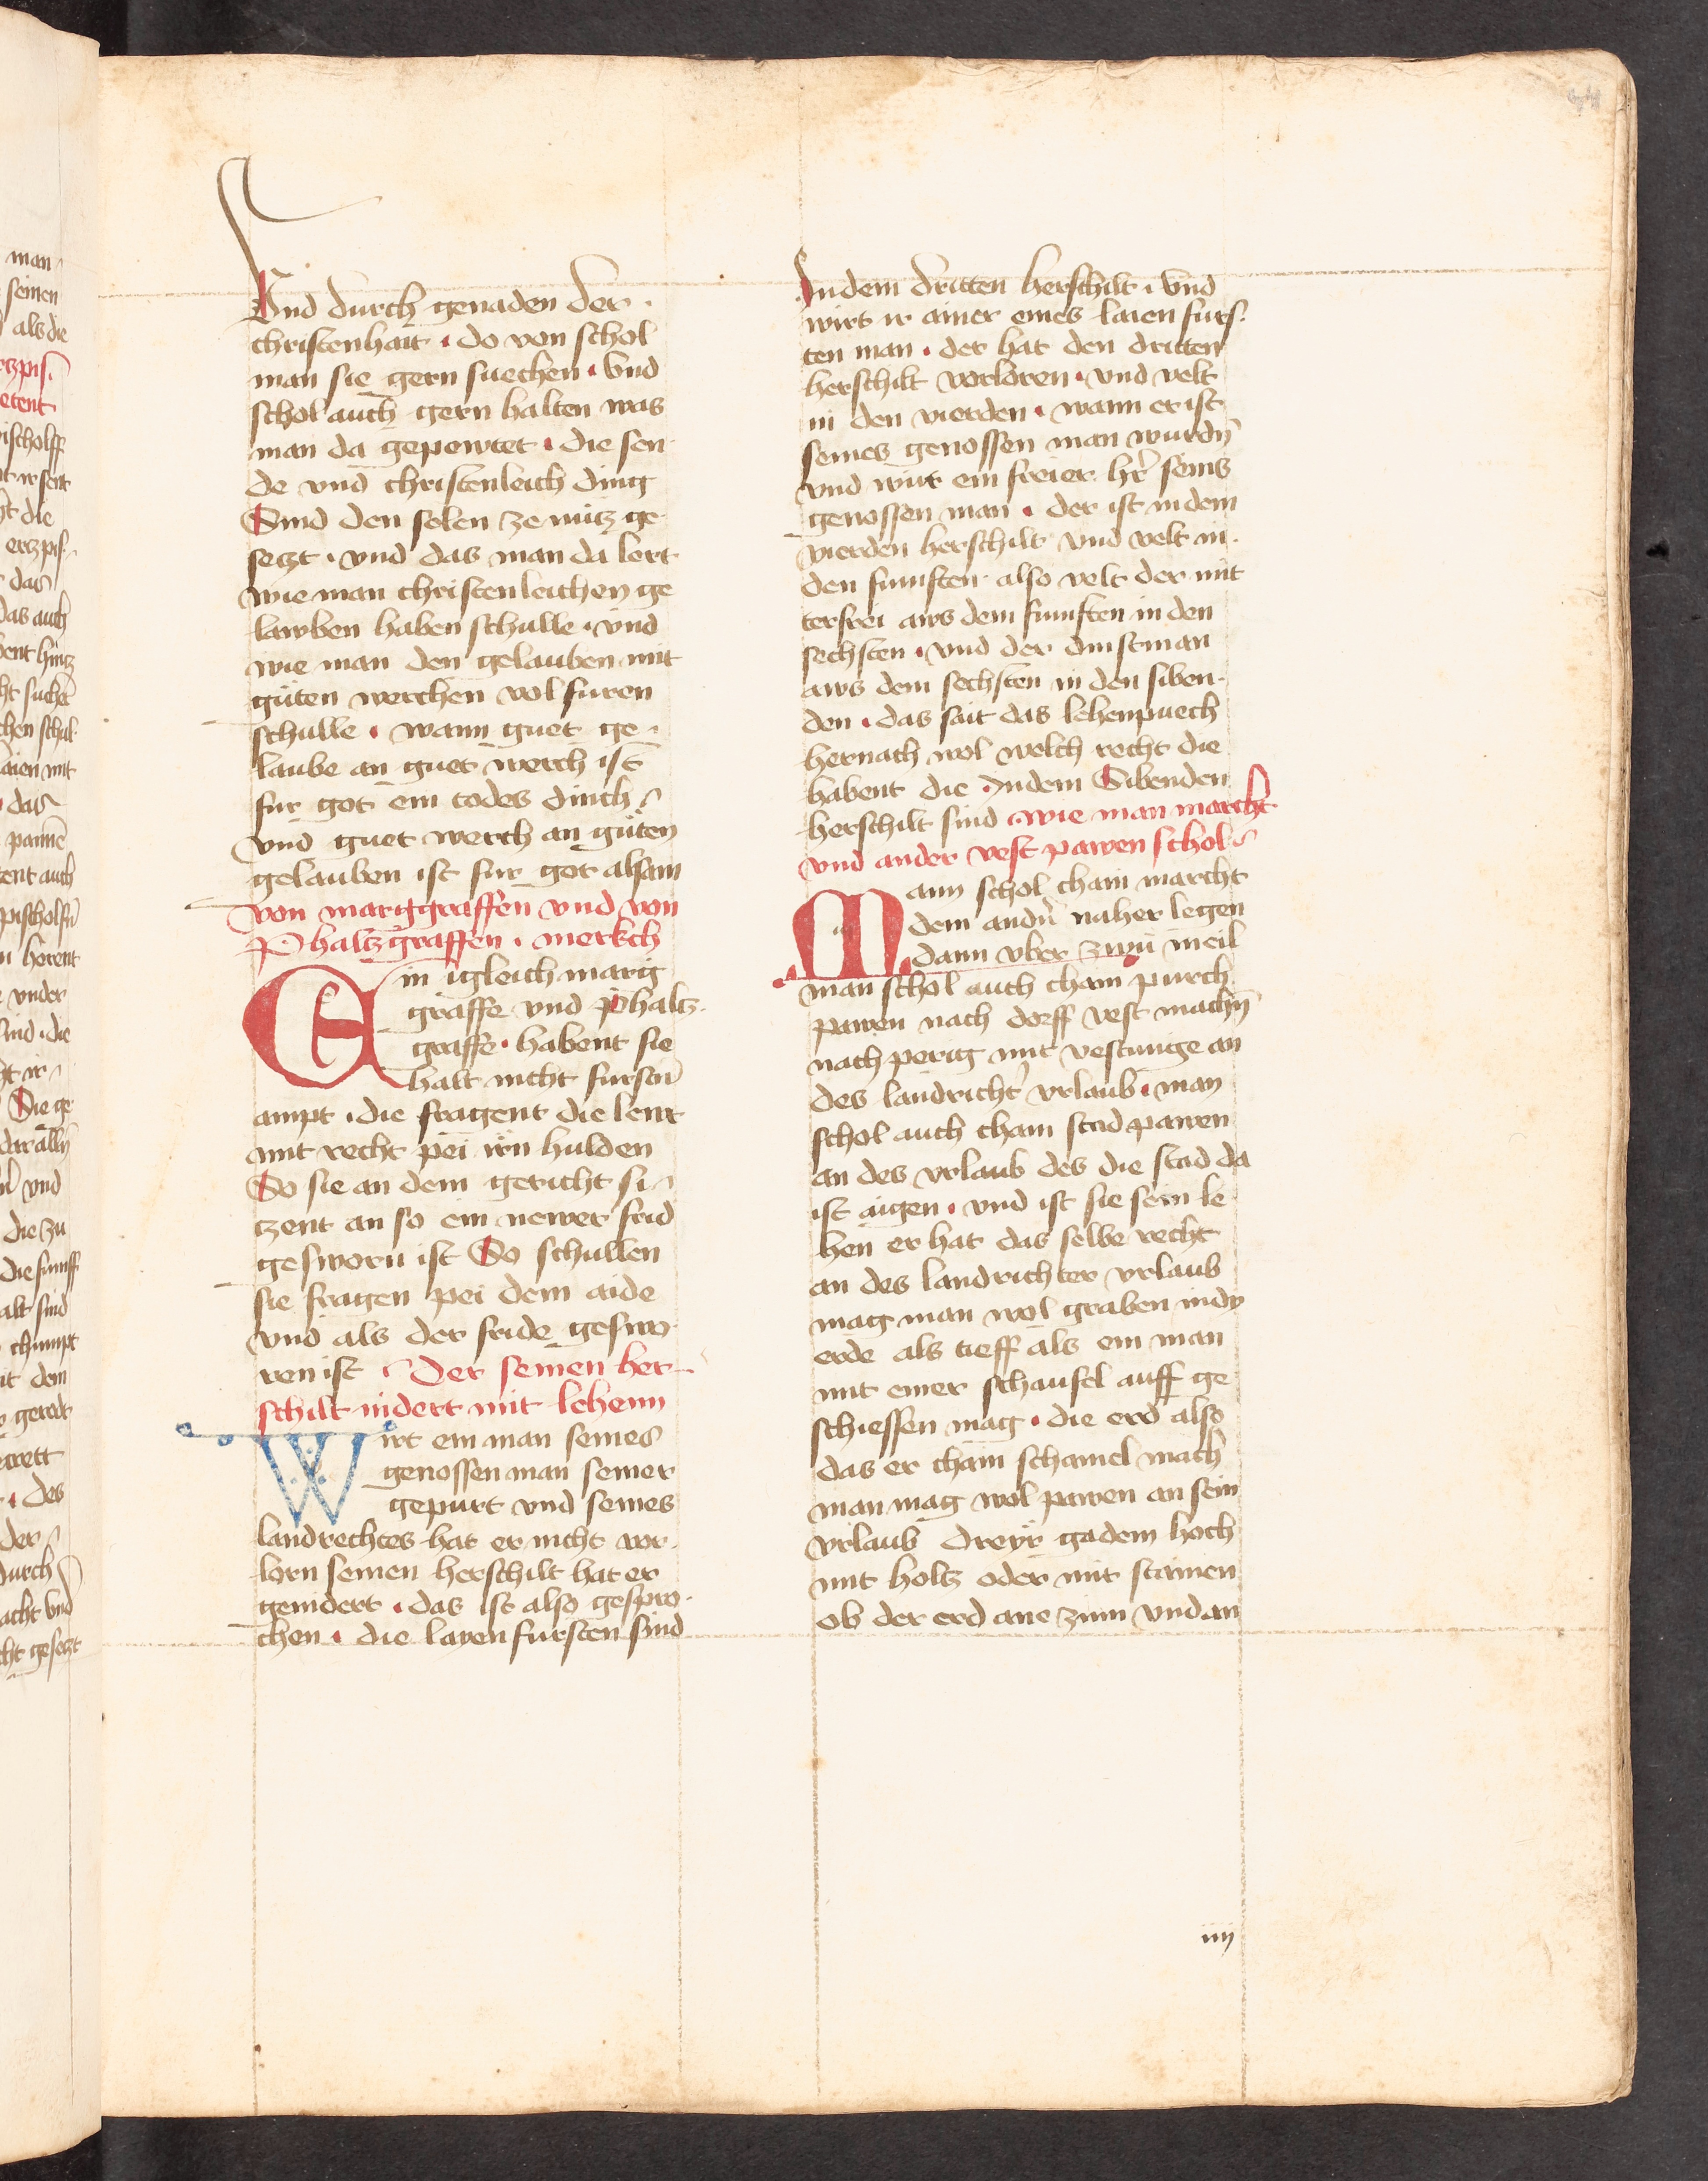 Vnd durch genaden der
christenhait · do von schol
man sie gern suechen · Vnd
schol auch gern halten was
man da gepewtet · die sen
de vnd christenleich ding
Sind den selen ze nutz ge
setzt · vnd das man da lert
wie man christenleichen ge
lawben haben schulle · vnd
wie man den gelauben mit
guten werchen vol furen
schulle · wann guet ge
laube an guet werch ist
fur got ein todes dinch
vnd guet werch an guten
gelauben ist fur got alsam
von marggraffen vnd von
Phaltzgraffen · merkch
Ein igleich marg
graffe vnd phaltz
graffe · habent sie
halt nicht fursten
ampt · die fragent die lewt
mit recht pei irn hulden
So sie an dem gericht si
tzent an so ein newer frid
gesworn ist So schullen
sie fragen pei dem aide
vnd als der fride geswo
ren ist · Der seinen her
schilt nidert mit lehenn
Wirt ein man seines
genossen man seiner
gepurt vnd seines
landrechtes hat er nicht vor
lorn seinen herschilt hat er
genidert · das ist also gespro
chen · die layen fursten sind
In dem dritten herschilt · Vnd
wirt ir ainer eines laien furs
ten man · der hat den dritten
herschilt vorloren · vnd velt
in den vierden · wann er ist
seines genossen man wurdn̄
vnd wirt ein freier hr̄ seins
genossen man · der ist in dem
vierden herschilt vnd velt in
den funften also velt der mit
terfrei aws dem funften in den
sechsten · vnd der dinstman
aws dem sechsten in den siben
den · das sait das lehenpuech
hernach wol welch recht die
habent die Indem Sibenden
herschilt sind wie man marcht
vnd ander vest pawen schol
Mann schol chain marcht
dem andn̄ naher legen
dann vber zwu meil
man schol auch chain purch
pawen nach dorff vest machn̄
nach perig mit vestunge an
des landricht̄ vrlaub · man
schol auch chain stad pawen
an des vrlaub des die stad da
ist aigen · vnd ist sie sein le
hen er hat das selbe recht
an des landrichter vrlaub
mag man wol graben in dy
erde als tieff als ein man
mit einer schaufel auff ge
schiessen mag · die erd also
das er chain schamel mach
man mag wol pawen an sein
vrlaub dreyr gadem hoch
mit holtz oder mit stainen
ob der erd ane zinn vnd an
iiij